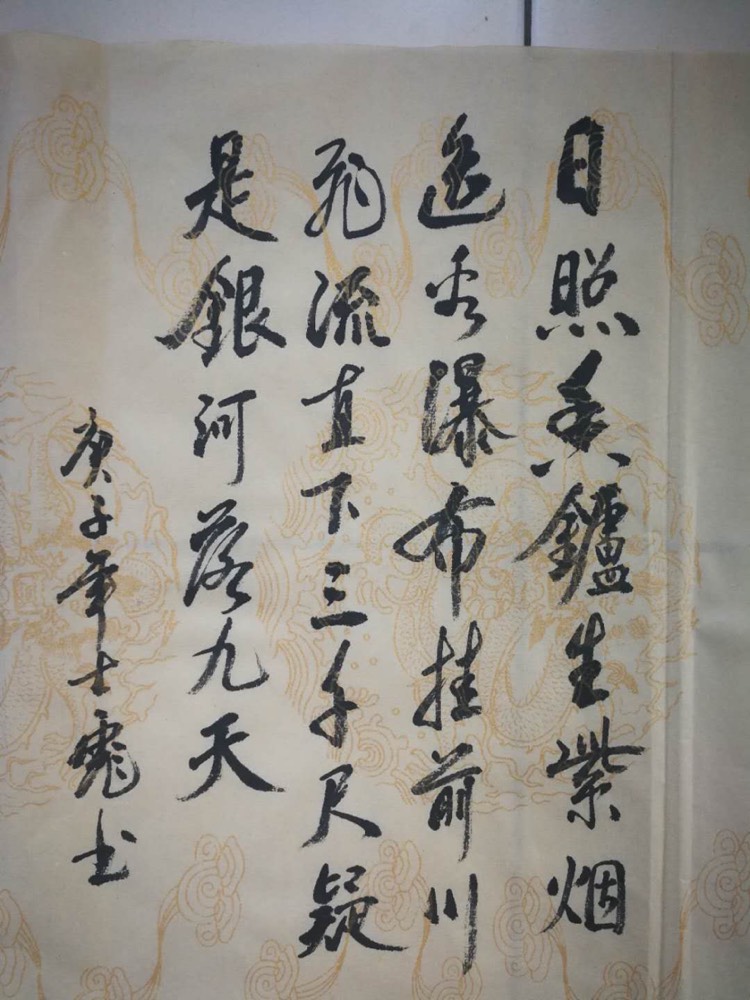 日照香鑪生紫烟
遥看瀑布挂前川
飛流直下三千尺疑
是銀河落九天
庚子年士虎书